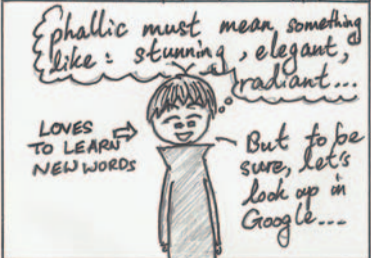 phallic must mean something
like: stunning, elegant,
radiant...
LOVES
TO LEARN
NEW WORDS
But to be
sure, let's
look up in
Google...